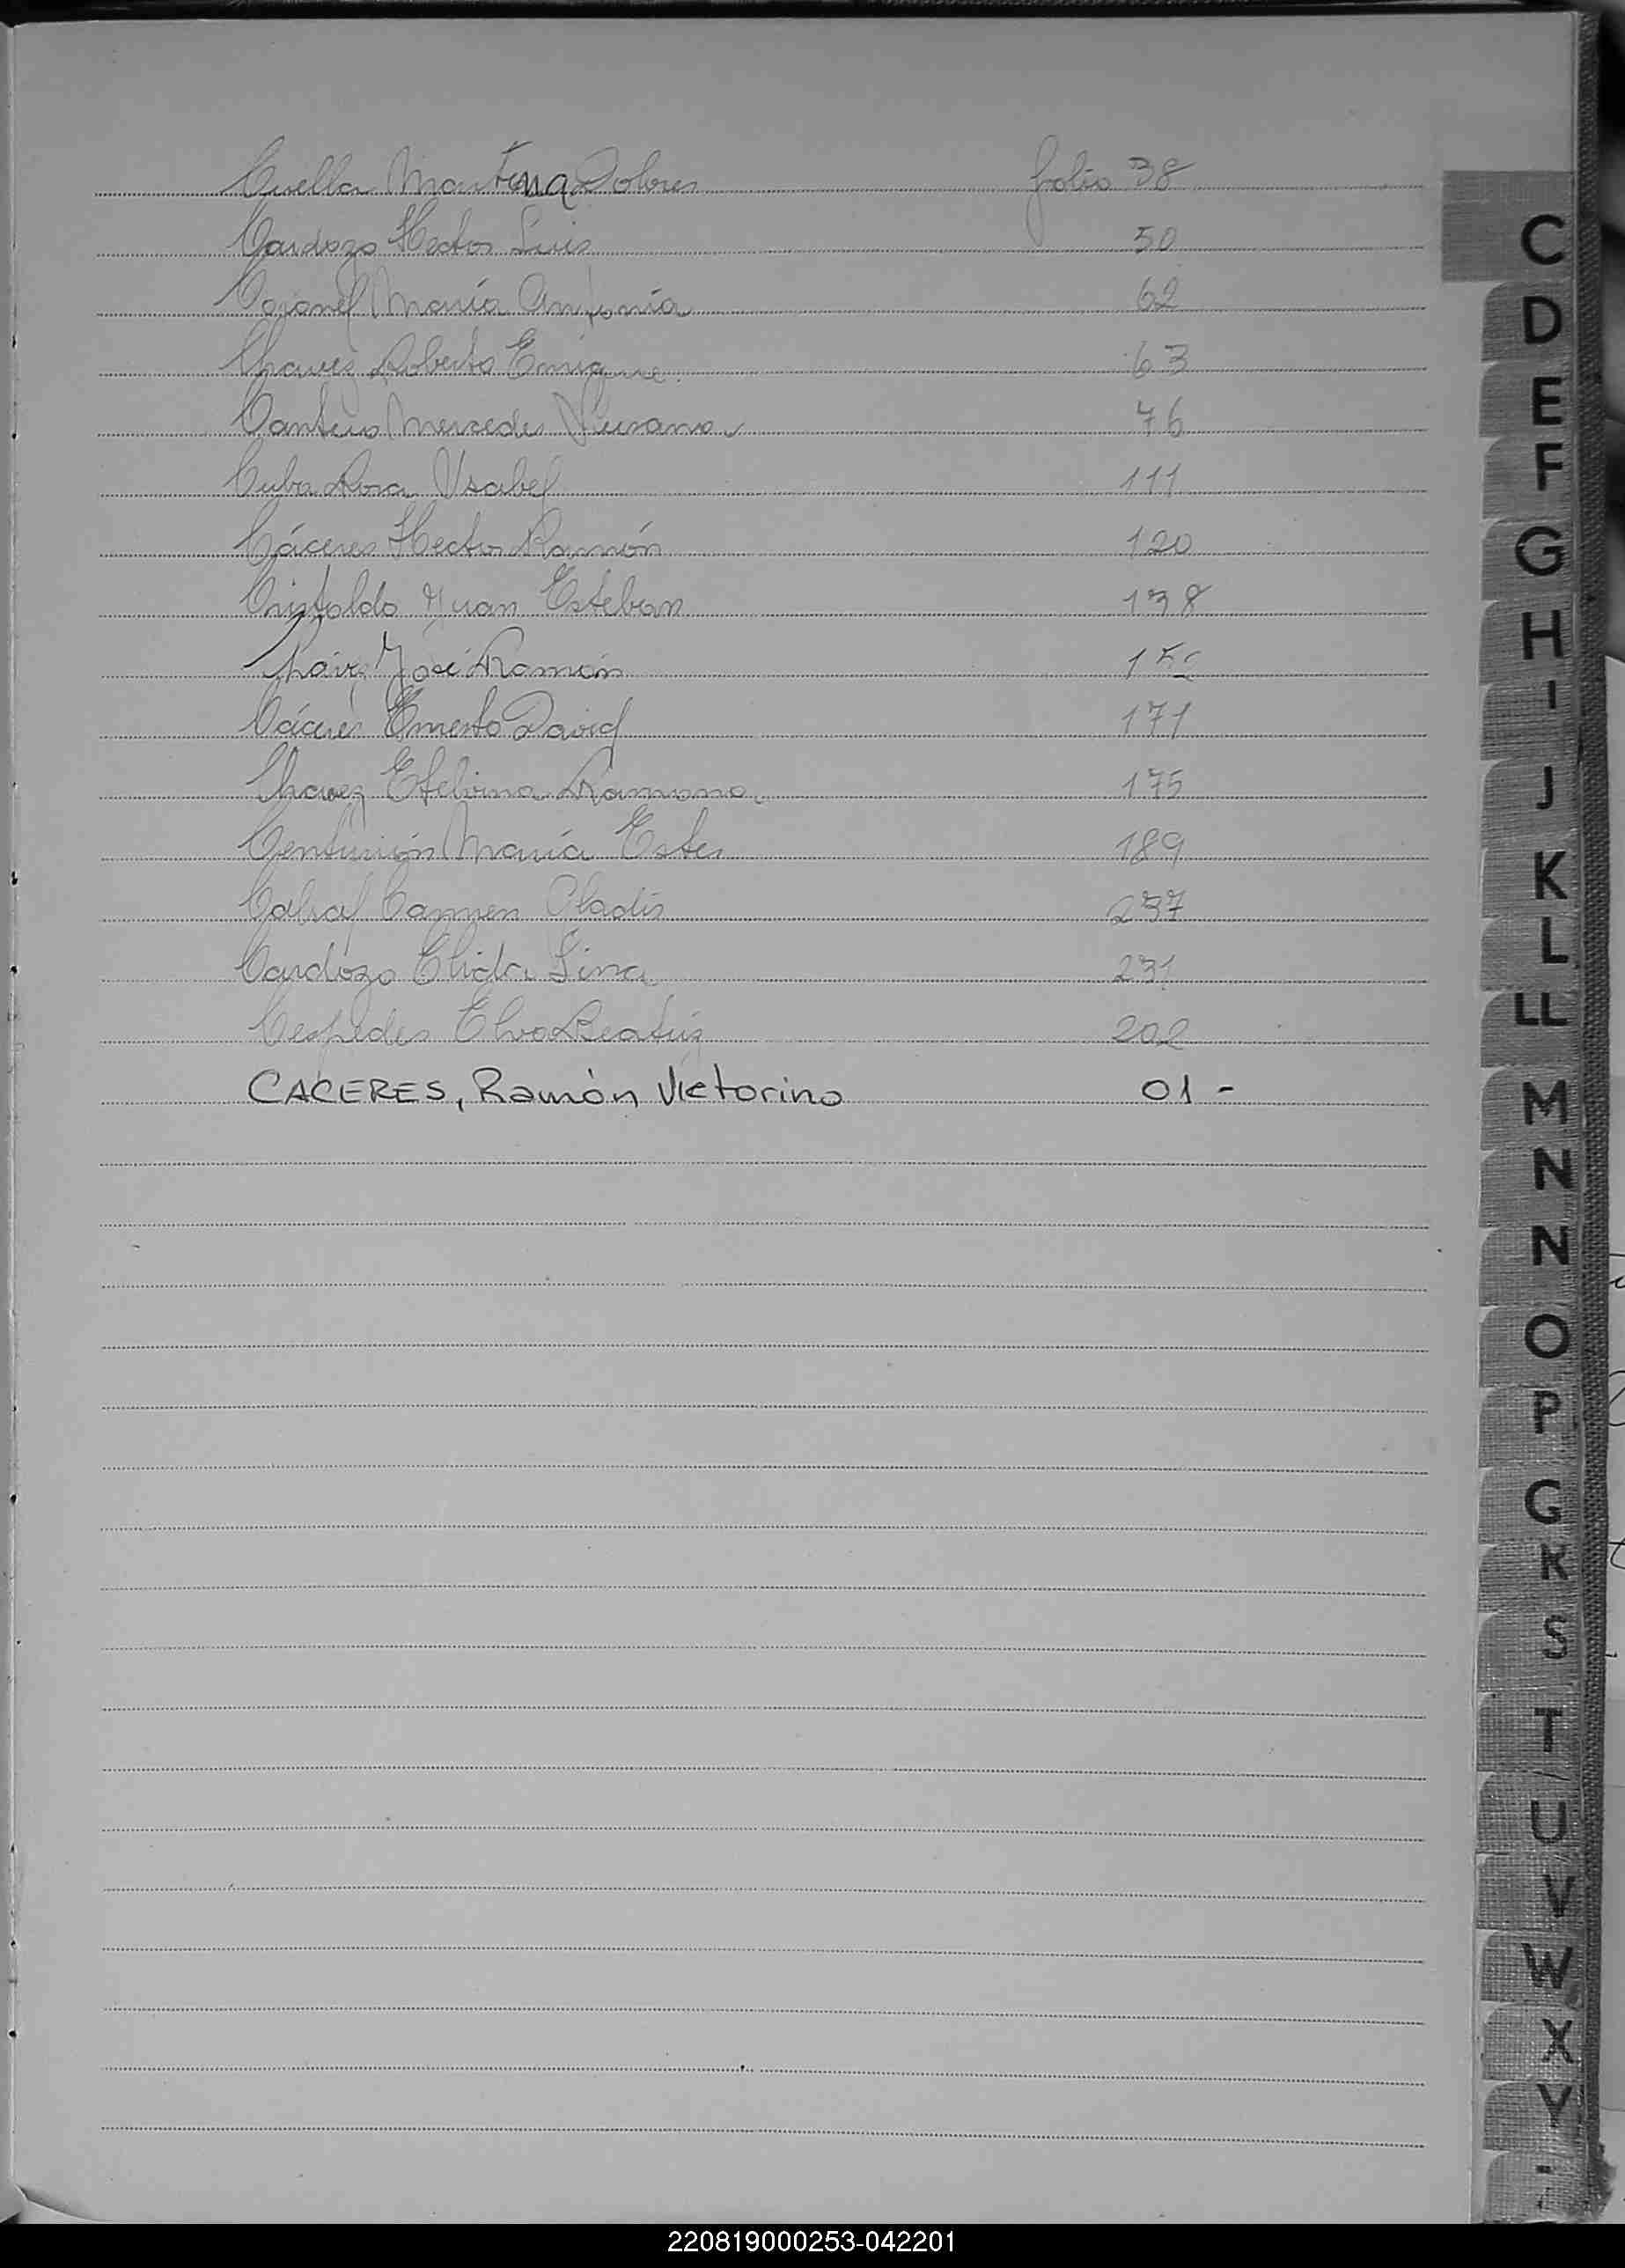 Cuella Martina Dolores folio 38
Cardozo Hector Luis 50
Coronel María Antonia 62
Chavez Roberto Enrique. 63
Cantero Mercedes Susana 76
Cuba Rosa Ysabel 111
Cáceres Hector Ramón 120
Cristaldo Juan Esteban 138
José Ramón
Cáceres Ernesto David 171
Chavez Etelvina Ramona 175
Centurión María Ester 189
Cabral Carmen Gladis 237
Cardozo Elida Lina 231
Cespedes Elva Beatriz 202
CACERES, Ramón Victorino 01 -
C
D
E
F
G
H
I
J
K
L
LL
M
N
N
O
P
G
K
S
T
U
V
W
X
Y
220819000253-042201